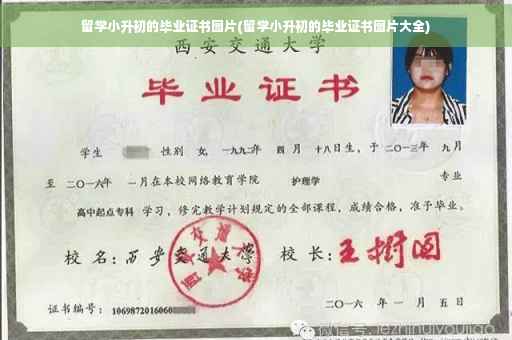 留学小升初的毕业证书图片(留学小升初的毕业证书图片大全)
西安交通大学
毕业证书
学生 性别 女, 一九九二年 四 月 十八日生, 于 二〇一三年 九月
至 二〇一六年 一月在本校网络教育学院 护理学 专业
高中起点专科 学习, 修完教学计划规定的全部课程, 成绩合格, 准予毕业。
校 名: 西安交通大学 校 长: 王树国
西安交通大学
证书编号: 1069872016060
二〇一六 年 一 月 五 日
微信号: jezhihuiyoujiao